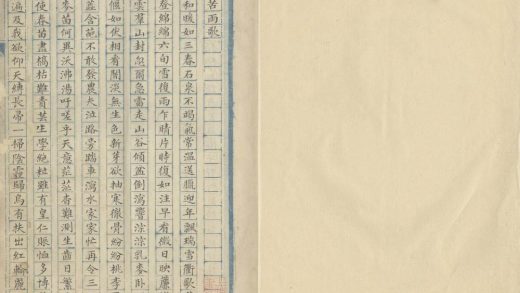 苦雨歌
和暖如三春石泉不竭氣常溫送臘迎年飄瑞雪衢歌
登綿綿六旬雪復雨乍晴片時復如注早看微日映簾
雲羣山封忽爾急雷走山谷傾盆倒瀉響淙淙乳麥卧
偃如伏相看闇淡無生色新芽欲抽寒徹骨紛紛桃李
蓋含葩不敢發農夫泣路旁蹄車瀉水家家忙再令三
麥苗何異沃沸湯吁嗟乎天意茫茫杳難測生齒日繁
使春苗盡槁枯難責芸生學絶粒雖有皇仁賑恤多博
遍及我欲仰天縛長帚一掃陰霾賜烏有扶出紅輪麗